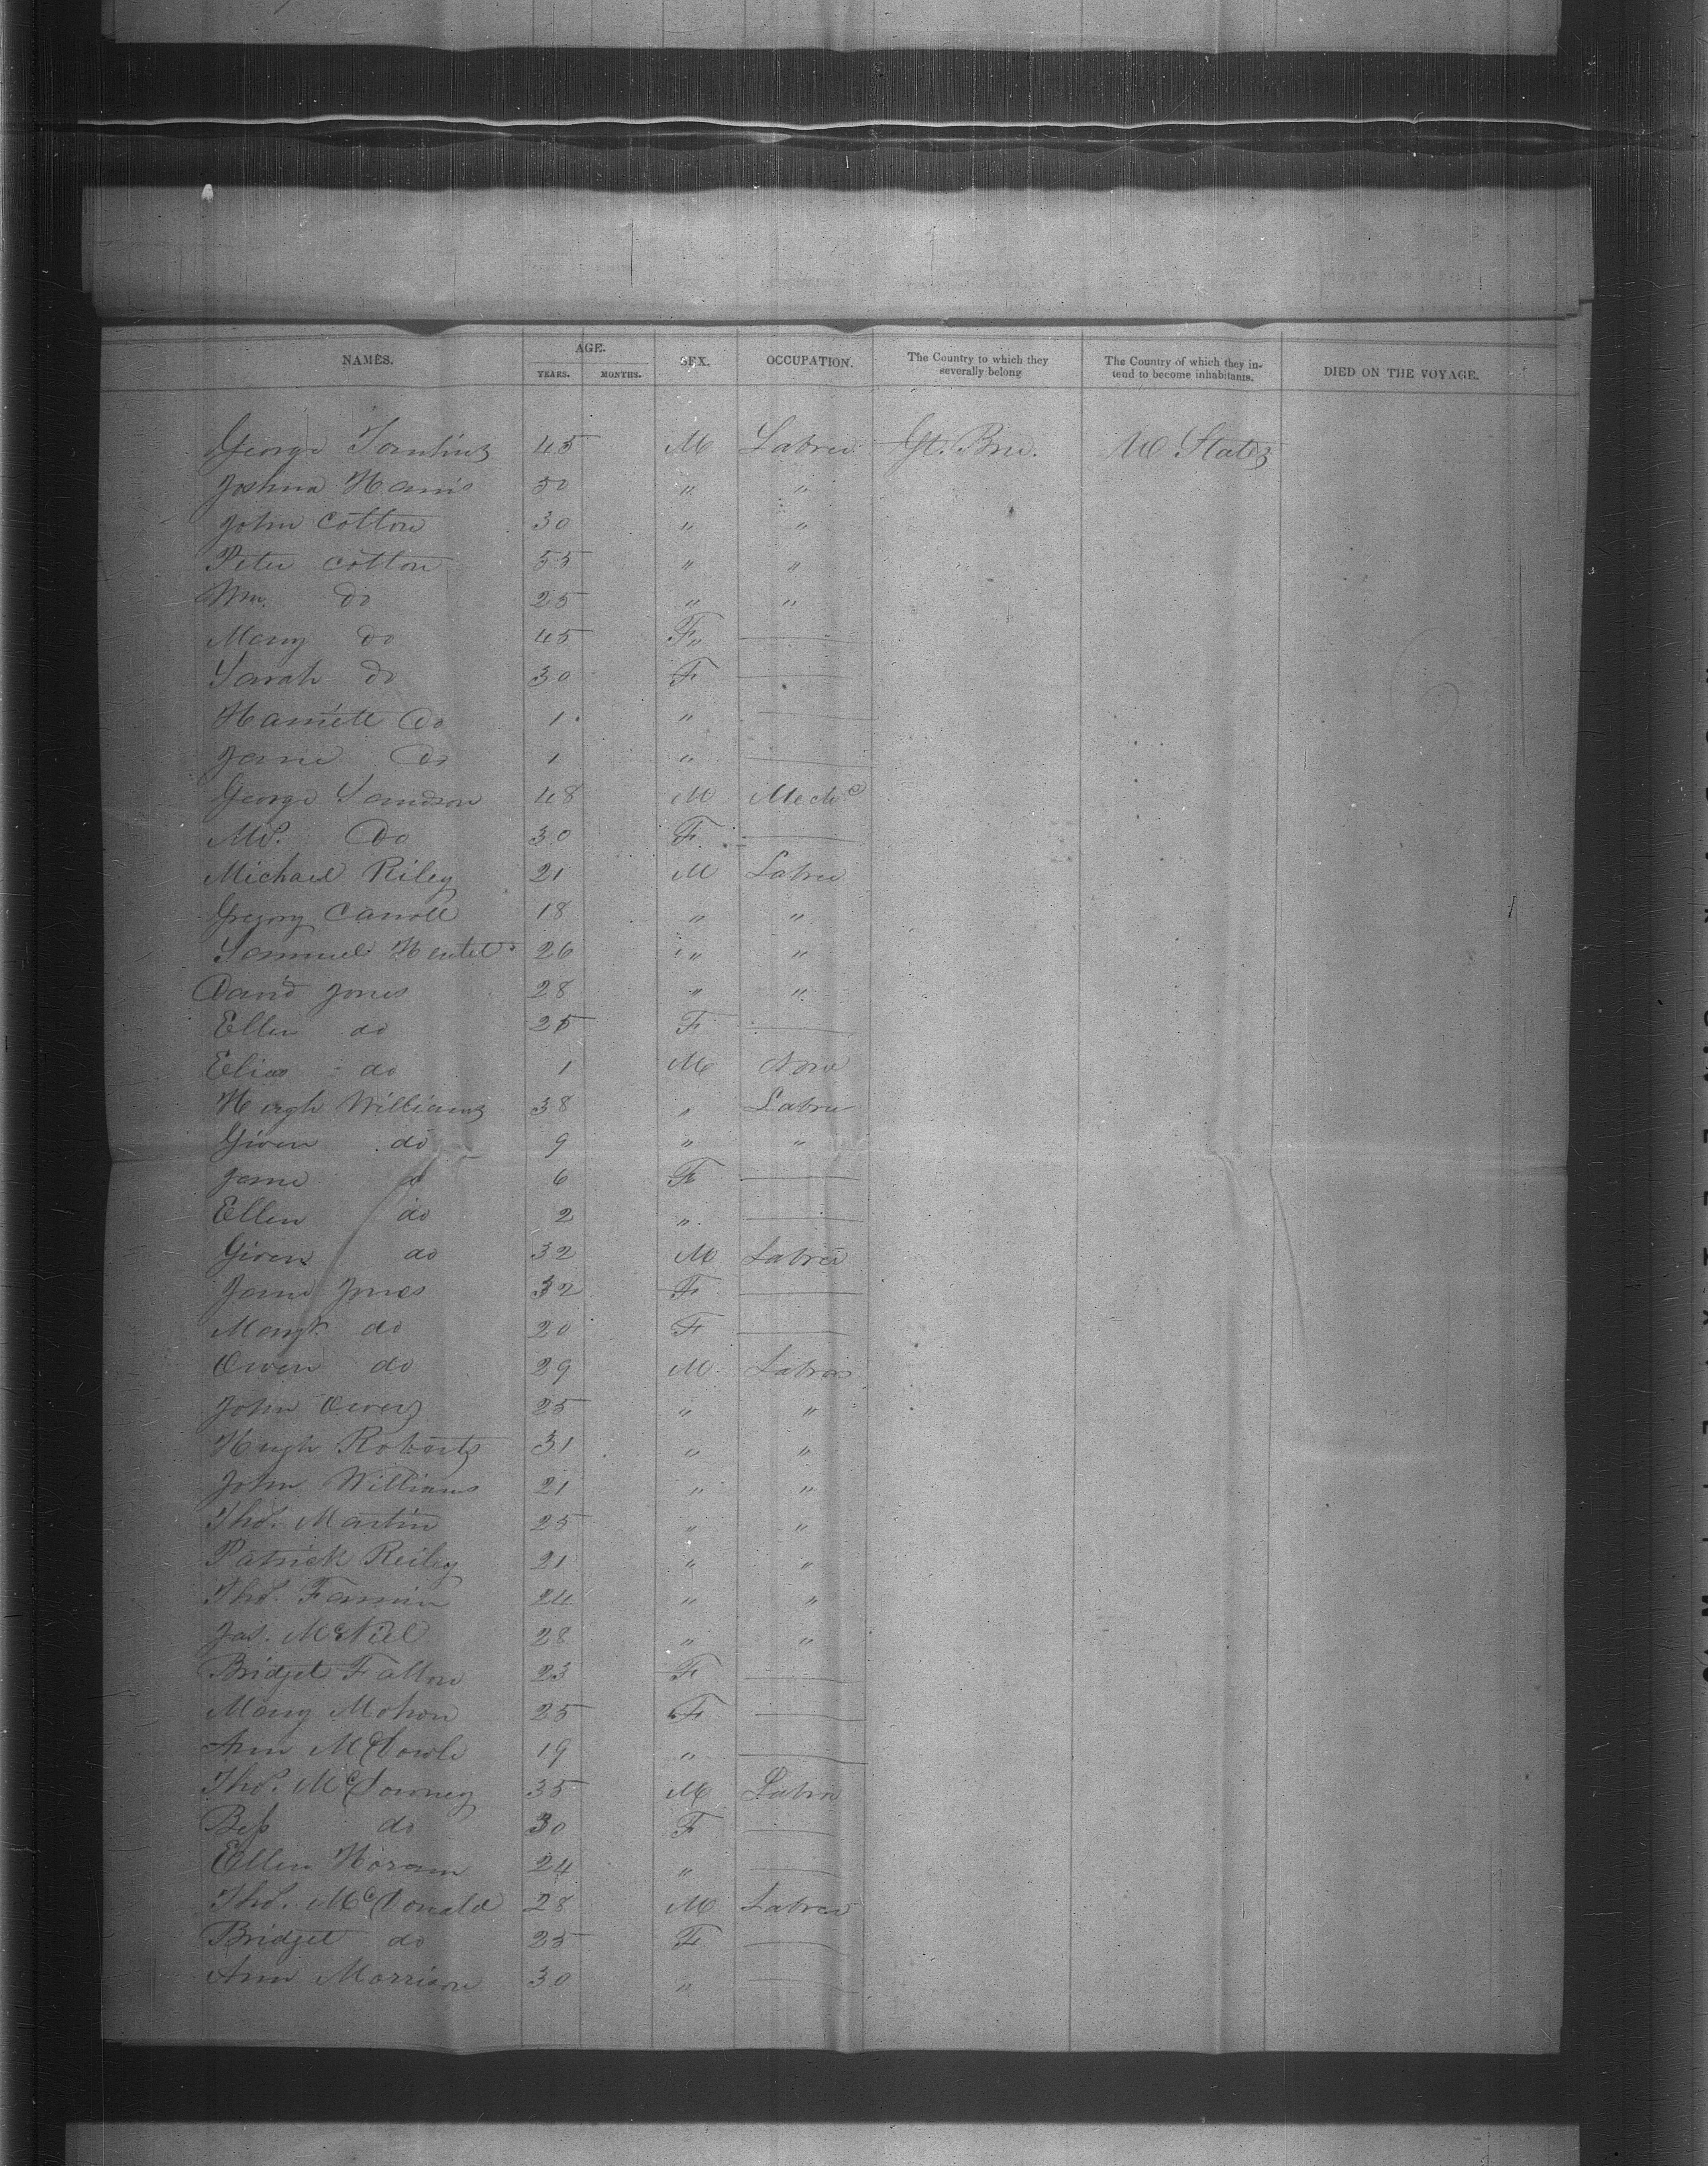 NAMES. AGE. YEARS. MONTHS. SEX. OCCUPATION. The Country to which they severally belong The Country of which they intend to become inhabitants. DIED ON THE VOYAGE.
George 45 M Labrer Gt. Brn. U States
Joshua Harris 50 " "
John Cotton 30 " "
Peter Cotton 55 " "
Wm. do 25 " "
Mary do 45 F"
Sarah do 30 F
Harriett Do 1 "
Jane Do 1 "
George Samdson 48 M Mechc
Ms. Do 30 F
Michael Riley 21 M Labrer
Gregory Carroll 18 " "
Sammuel 26 " "
David Jones 28 " "
Ellen do 25 F
Elias do 1 M None
Hugh Williams 38 " Labrer
Given do 9 " "
Jane d 6 F
Ellen do 2 "
Given do 32 M Labrer
Jane Jones 32 F
Margt. do 20 F
Owen do 29 M Labror
John Owens 25 " "
Hugh Roberts 31 " "
John Williams 21 " "
Thos. Martin 25 " "
Patrick Reiley 21 " "
Thos. Fannin 24 " "
Jas. McNiel 28 " "
Bridget Fallon 23 F
Mary Mohon 25 F
Ann McDowle 19 "
Thos. McDowney 35 M Labror
Bess do 30 F
Ellen Horann 24 "
Thos. McDonald 28 M Labrer
Bridget do 25 F
Ann Morrison 30 "